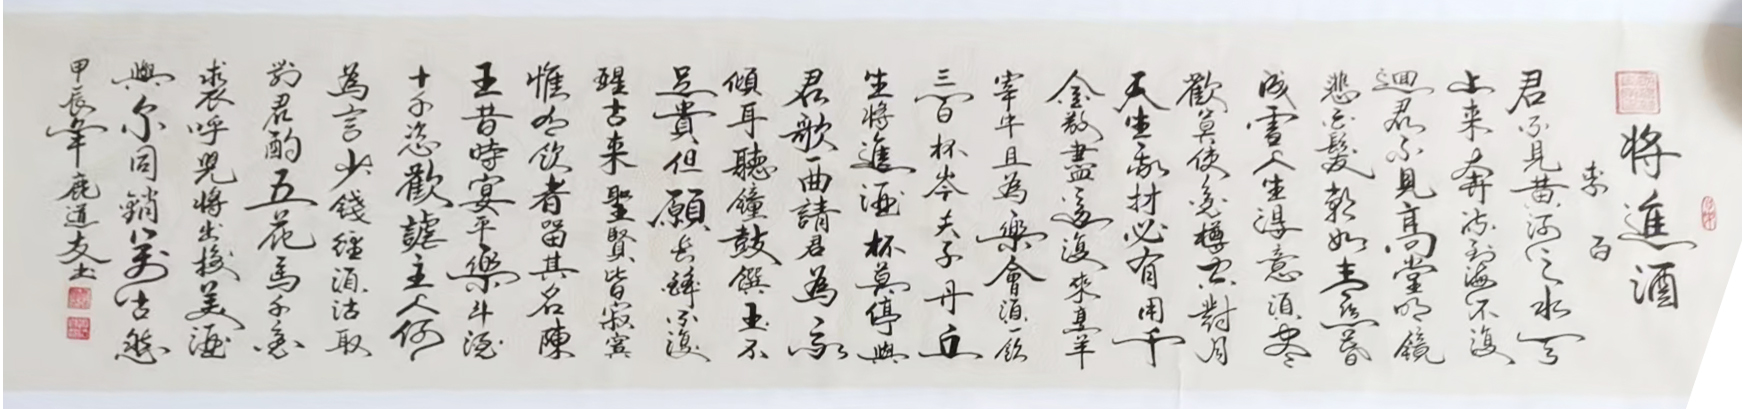 將進酒
李白
君不見黃河之水天
上来奔流到海不復
迴君不見高堂明鏡
悲白髮朝如青絲暮
成雪人生得意須盡
歡莫使金樽空對月
天生我材必有用千
金散盡還復來烹羊
宰牛且為樂會須一飲
三百杯岑夫子丹丘
生將進酒杯莫停與
君歌一曲請君為我
傾耳聽鐘鼓饌玉不
足貴但願長醉不復
醒古来聖賢皆寂寞
惟有飲者留其名陳
王昔時宴平樂斗酒
十千恣歡謔主人何
為言少錢徑須沽取
對君酌五花馬千金
裘呼兒將出換美酒
與尔同銷萬古愁
甲辰年鹿道友书